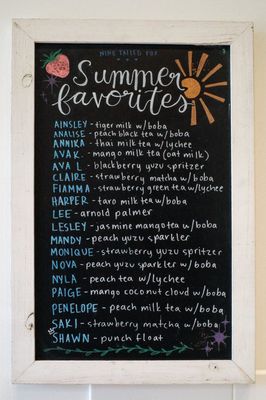 NINE TAILED FOX
Summer
favorites
AINSLEY - tiger milk w/boba
ANALISE - peach black tea w/ boba
ANNIKA - thai milk tea w/ lychee
AVA K. - mango milk tea (oat milk)
AVA L. - blackberry yuzu spritzer
CLAIRE - strawberry matcha w/ boba
FIAMMA - strawberry green tea w/lychee
HARPER - taro milk tea w/boba
LEE - arnold palmer
LESLEY - jasmine mango tea w/ boba
MANDY - peach yuzu sparkler
MONIQUE - strawberry yuzu spritzer
NOVA - peach yuzu sparkler w/ boba
NYLA - peach tea w/ lychee
PAIGE - mango coconut cloud w/boba
PENELOPE - peach milk tea w/ boba
SAKI - strawberry matcha w/boba
SHAWN - punch float